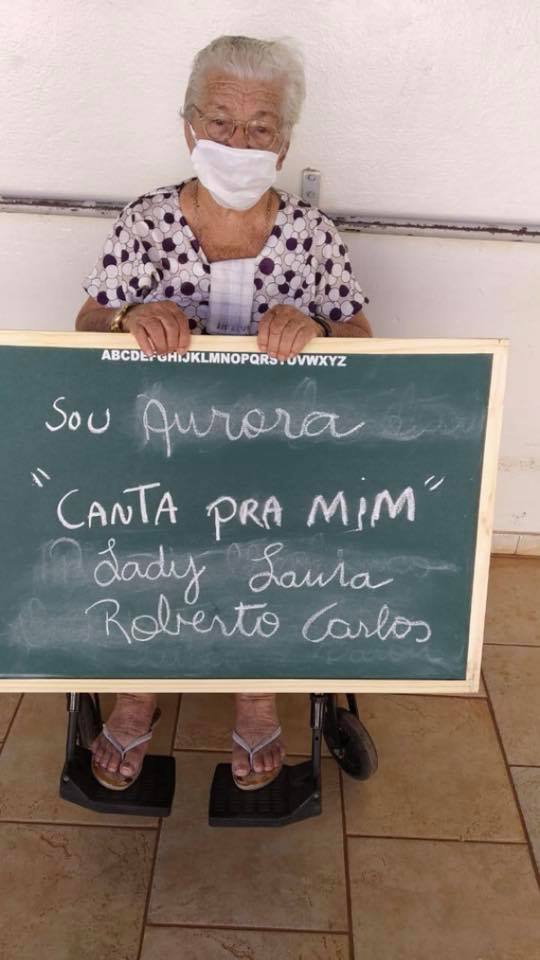 ABCDEFGHIJKLMNOPQRSTUVWXYZ
Sou Aurora
"CANTA PRA MIM"
Lady Laura
Roberto Carlos